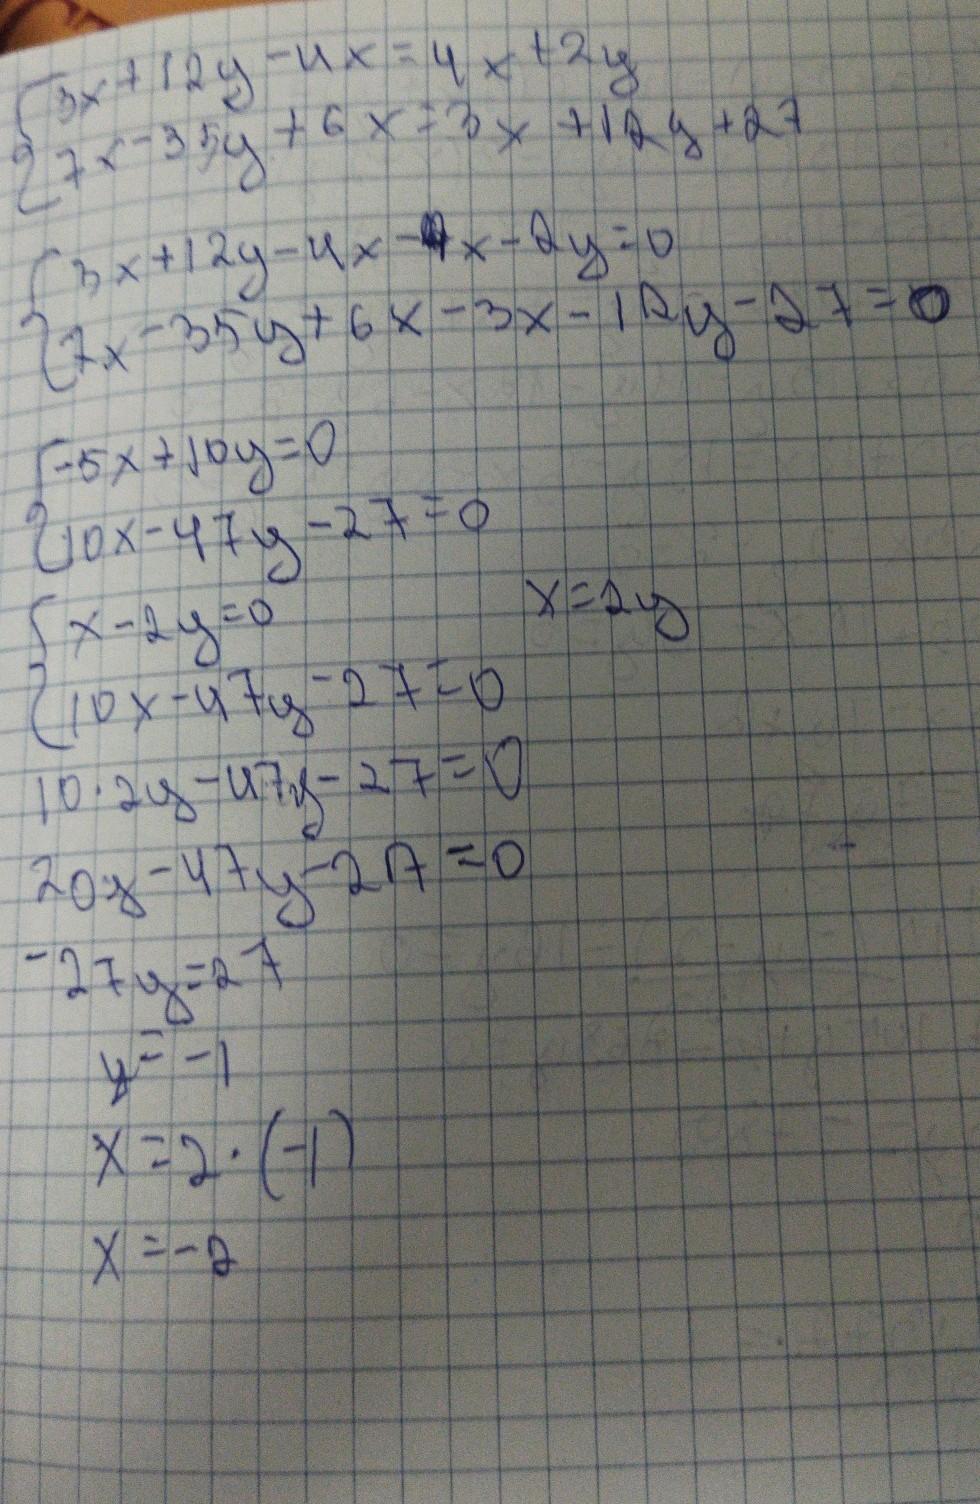 {3x+12y-4x=4x+2y
{7x-35y+6x=3x+12y+27
{3x+12y-4x-4x-2y=0
{7x-35y+6x-3x-12y-27=0
{-5x+10y=0
{10x-47y-27=0
{x-2y=0 x=2y
{10x-47y-27=0
10·2y-47y-27=0
20y-47y-27=0
-27y=27
y=-1
x=2·(-1)
x=-2